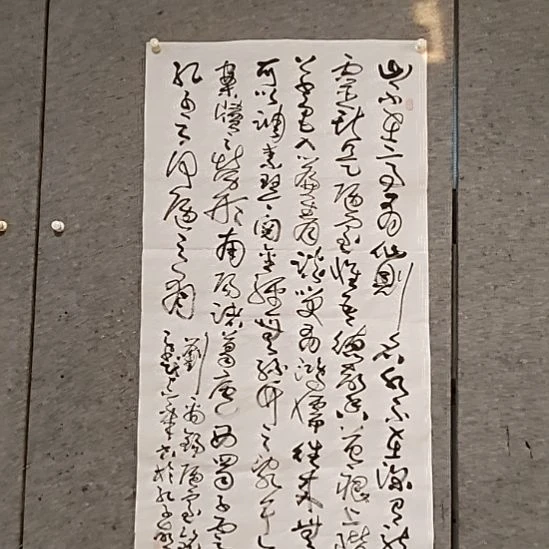 山不在高有仙則名水不在深有龍
靈斯是陋室惟吾德馨苔痕上階
草色入簾青談笑有鴻儒往來無
可以調素琴閱金經無絲竹之亂耳
案牘之勞形南陽諸葛廬西蜀子雲
孔子云何陋之有
劉禹錫陋室銘